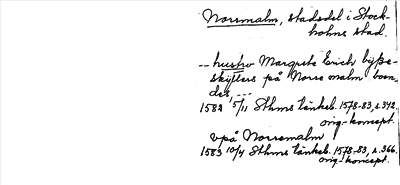 Norrmalm, stadsdel i Stock-
holms stad.
-- hustro Margrete Erich bysse-
skytters på Norre malm boen-
des ---
1582 5/11 Sthms tänkeb. 1578-83, s. 342.
orig-koncept.
vpå Norremalm
1583 10/4 Sthms tänkeb. 1578-83, s. 366.
orig-koncept.